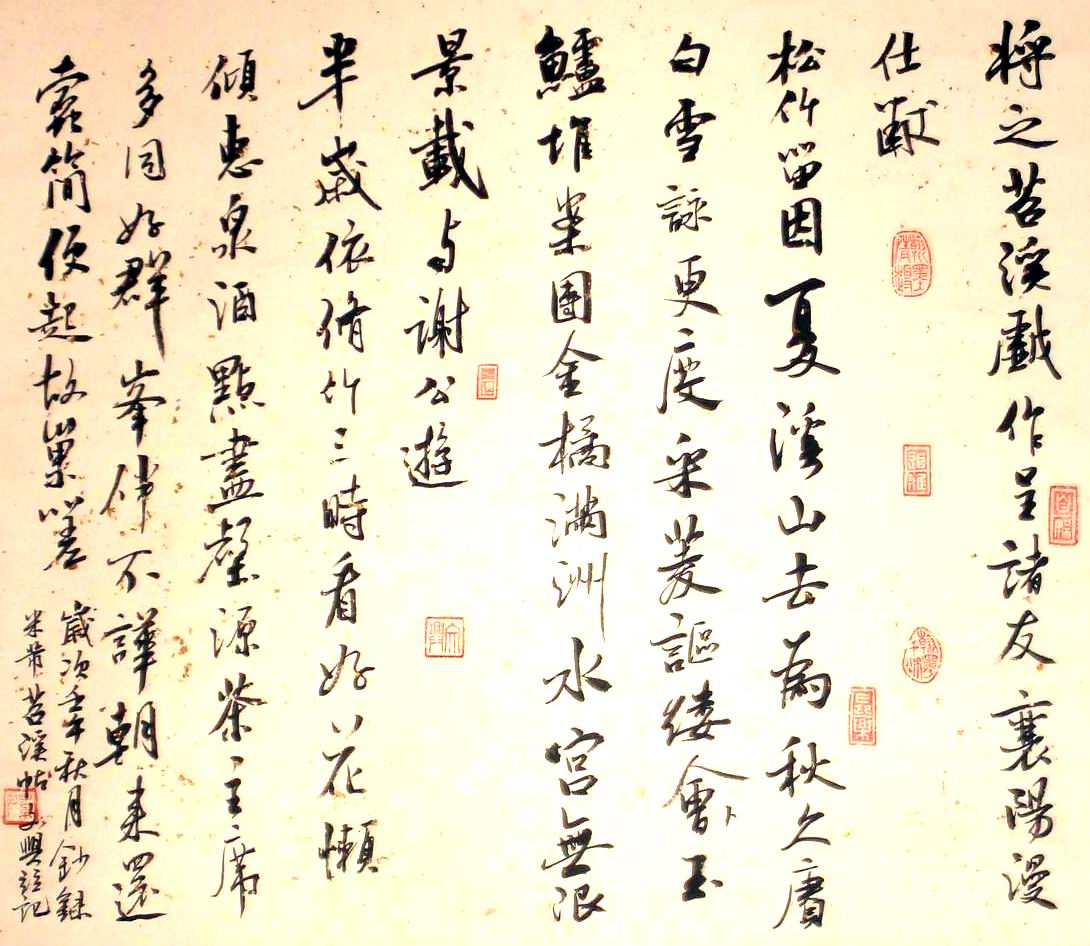 将之苕溪戲作呈諸友襄陽漫
仕黻
松竹留因夏溪山去為秋久賡
白雪詠更度采菱謳縷會玉
鱸堆案團金橘滿洲水宮無限
景載与謝公遊
半歲依脩竹三時看好花懶
傾惠泉酒點盡壑源茶主席
多同好群峯伴不譁朝来還
蠹簡便起故巢嗟
歲次壬午秋月鈔錄
米芾苕溪帖